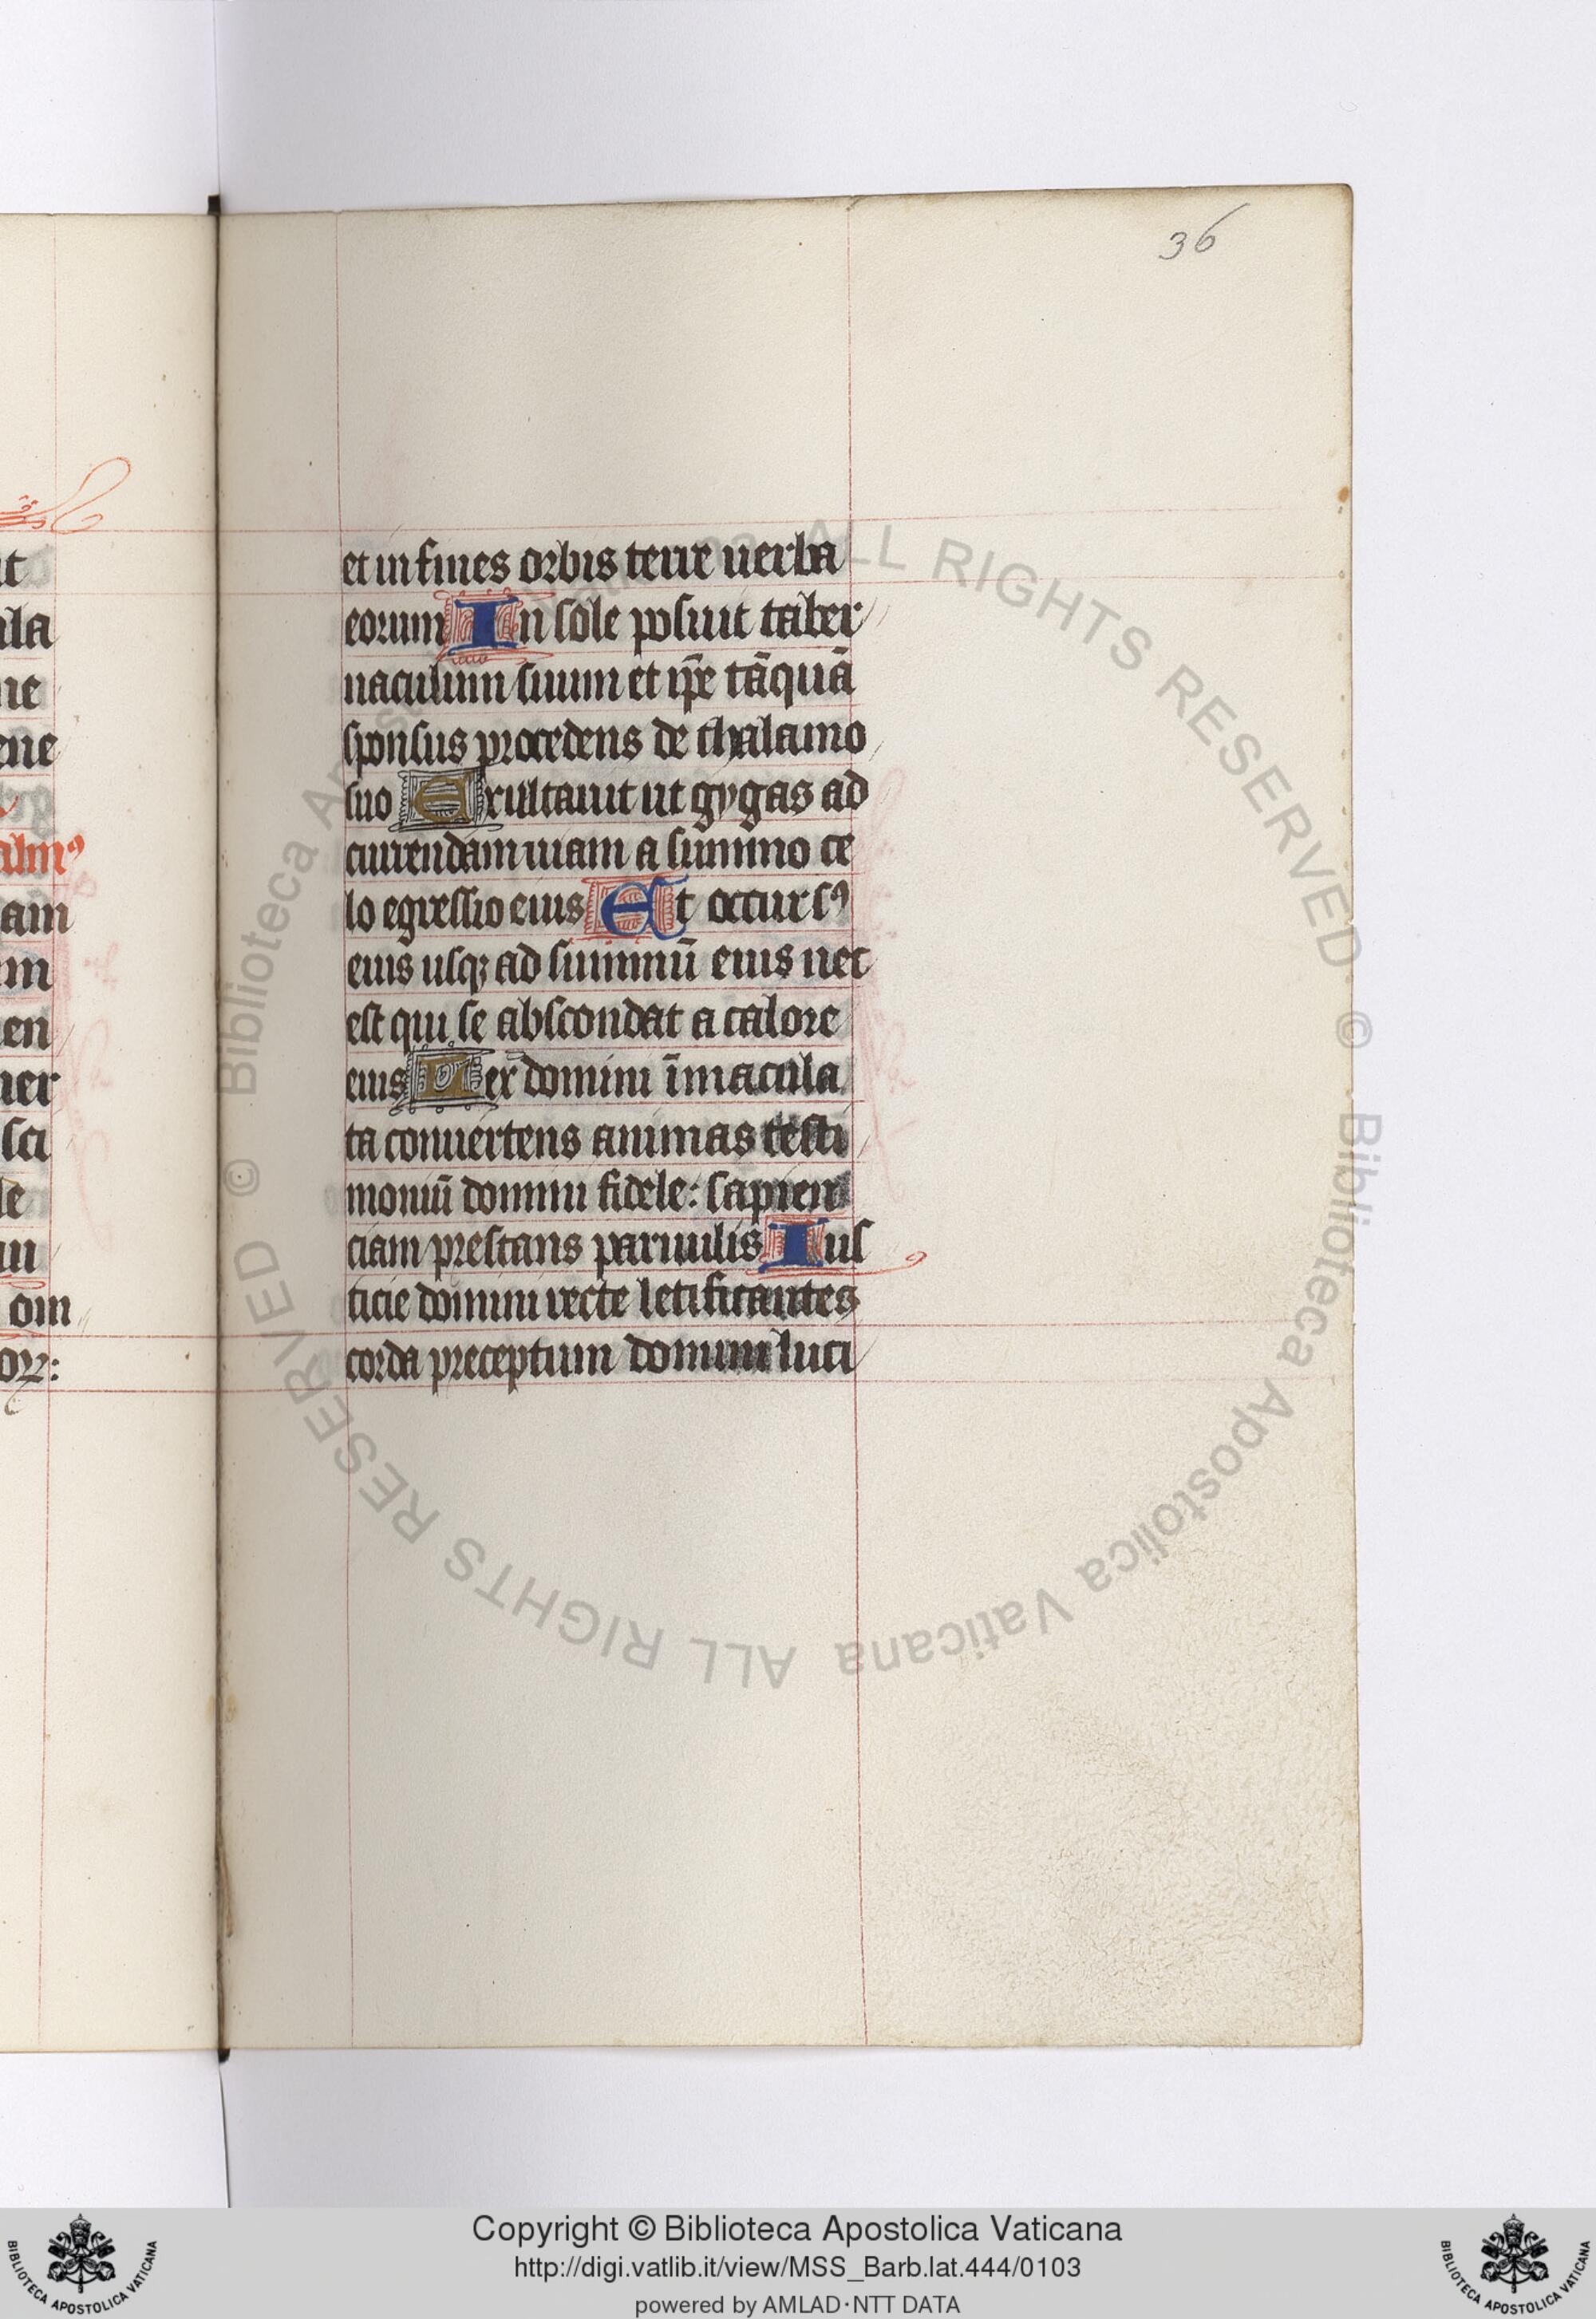 36
et in fines orbis terre uerba
eorum In sole posuit taber
naculum suum et ip̄e tāquā
sponsus procedens de thalamo
suo Exultauit ut gygas ad
currendam uiam a summo ce
lo egressio eius Et occursꝰ
eius usqꝫ ad summū eius nec
est qui se abscondat a calore
eius Lex domini īmacula
ta conuertens animas testi
moniū domini fidele: sapien
ciam prestans paruulis Ius
ticie domini recte letificantes
corda preceptum domini luci
ut
ila
ne
ene
almꝰ
am
m
en
ner
sci
le
om
oꝝ:
© Biblioteca Apostolica Vaticana ALL RIGHTS RESERVED © Biblioteca Apostolica Vaticana ALL RIGHTS RESERVED
Copyright © Biblioteca Apostolica Vaticana
http://digi.vatlib.it/view/MSS_Barb.lat.444/0103
powered by AMLAD·NTT DATA
BIBLIOTECA APOSTOLICA VATICANA
BIBLIOTECA APOSTOLICA VATICANA